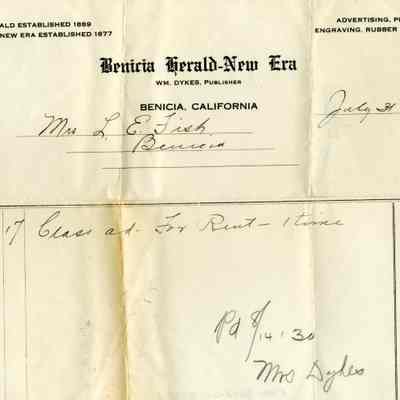 ALD ESTABLISHED 1889
NEW ERA ESTABLISHED 1877
ADVERTISING, P
ENGRAVING. RUBBER
Benicia Herald-New Era
WM. DYKES, PUBLISHER
BENICIA, CALIFORNIA
July 31
Mrs L. E. Fish
Benicia
17 Class ad. For Rent - 1 time
Pd 8/14 30
Mrs Dykes